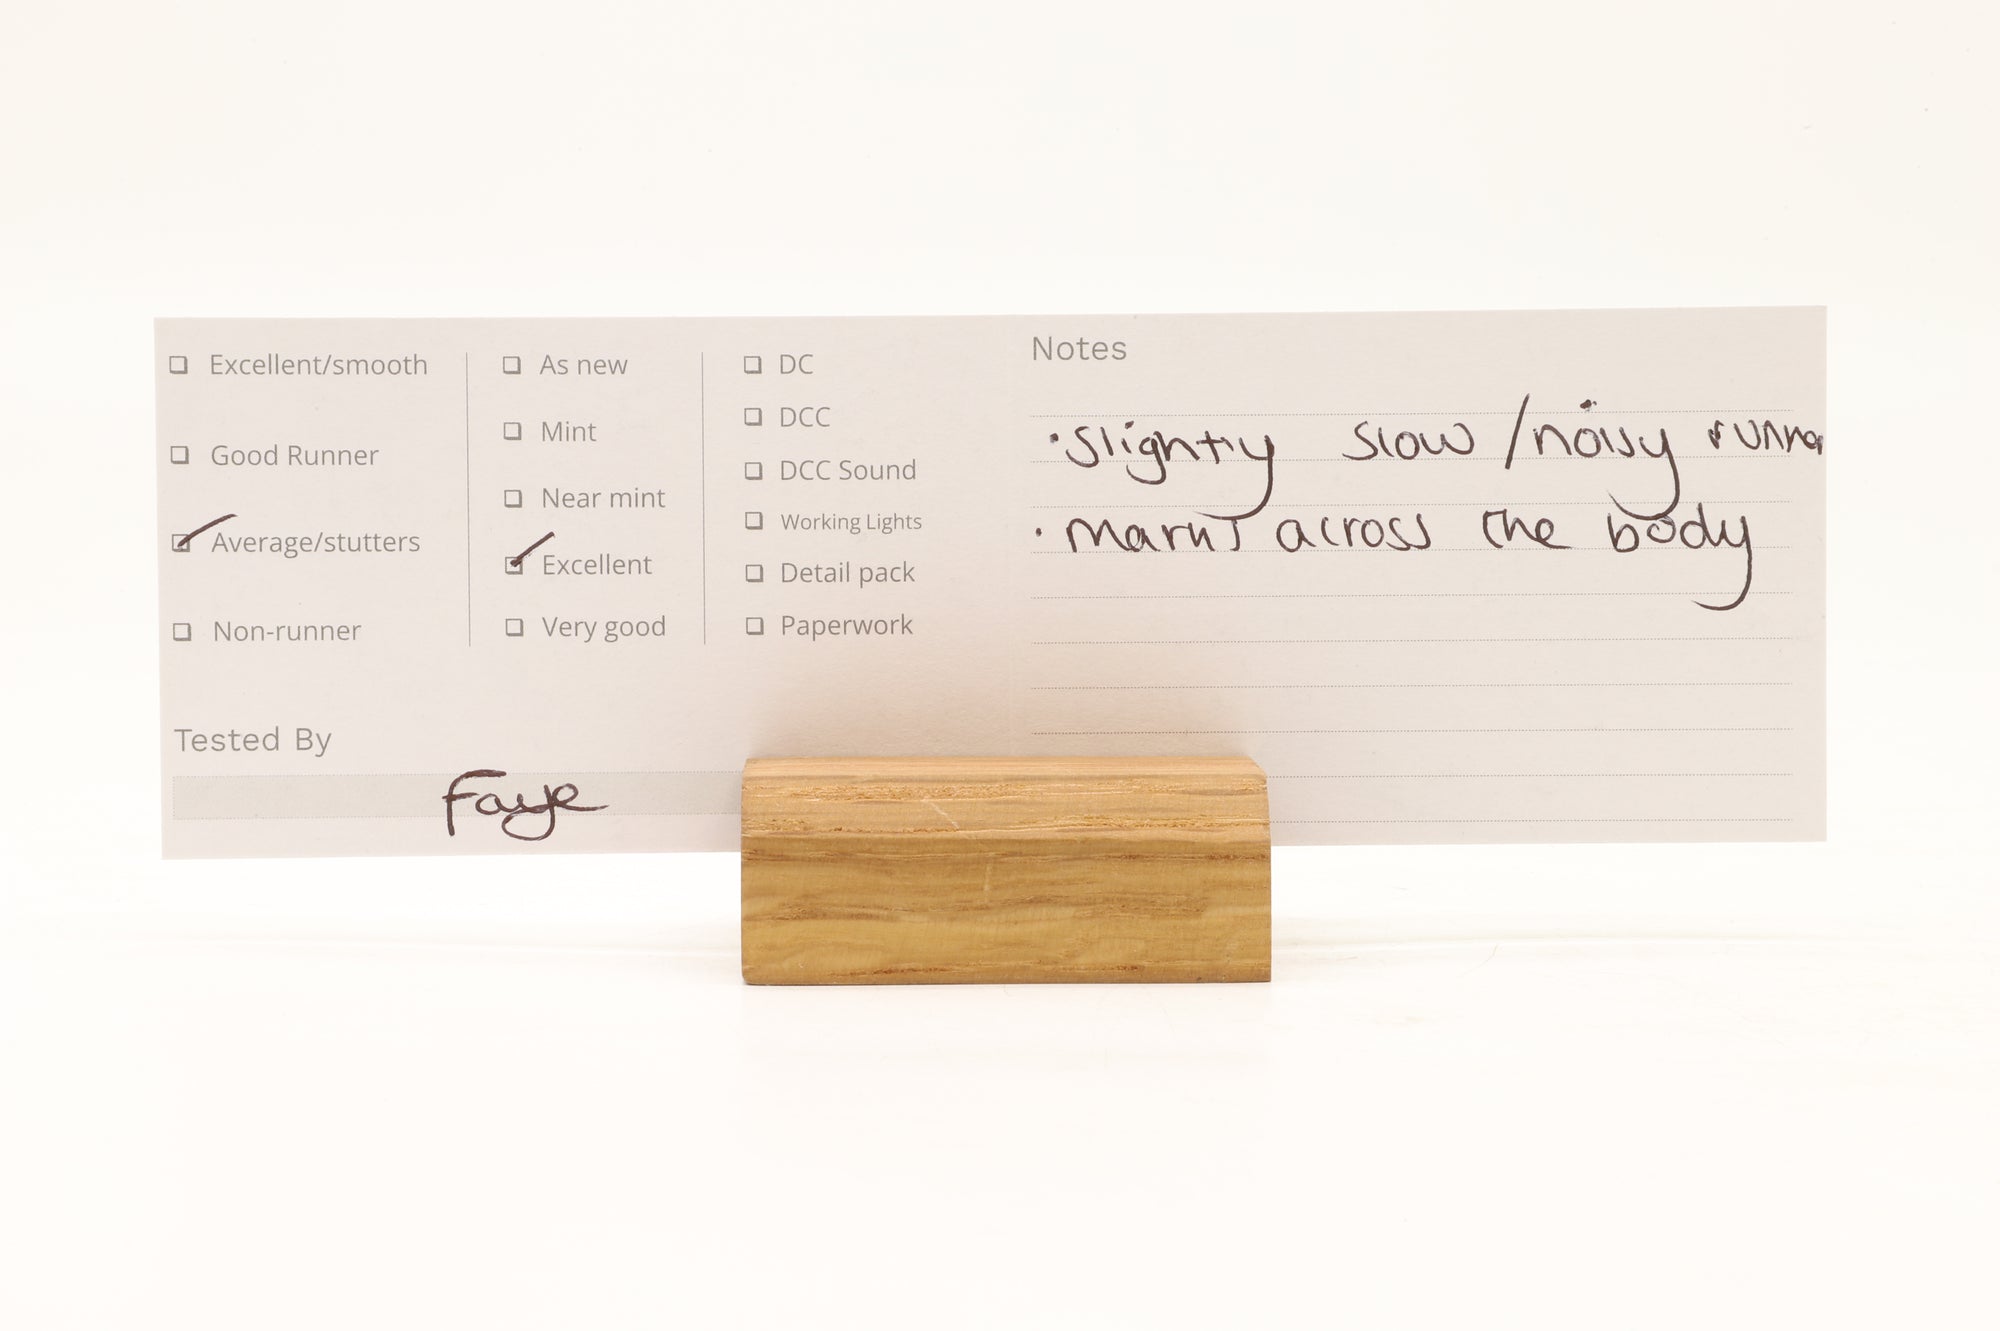 ☐ Excellent/smooth
☐ Good Runner
☑ Average/stutters
☐ Non-runner
☐ As new
☐ Mint
☐ Near mint
☑ Excellent
☐ Very good
☐ DC
☐ DCC
☐ DCC Sound
☐ Working Lights
☐ Detail pack
☐ Paperwork
Tested By
Faye
Notes
· Slightly slow / noisy runner
· Marks across the body